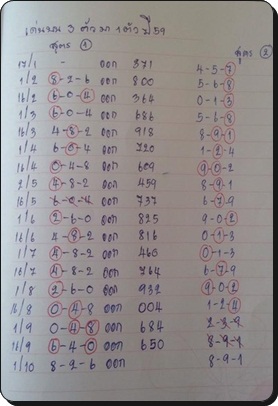 เด่นบน 3 ตัวมา 1 ตัว ปี 59
สูตร 1 สูตร 2
17/1 - ออก 371 4-5-7
1/2 8-2-6 ออก 800 5-6-8
16/2 6-0-4 ออก 364 0-1-3
1/3 6-0-4 ออก 686 5-6-8
16/3 4-8-2 ออก 918 8-9-1
1/4 6-0-4 ออก 720 1-2-4
16/4 0-4-8 ออก 609 9-0-2
2/5 4-8-2 ออก 459 8-9-1
16/5 6-0-4 ออก 737 6-7-9
1/6 2-6-0 ออก 825 9-0-2
16/6 4-8-2 ออก 816 0-1-3
1/7 4-8-2 ออก 460 0-1-3
16/7 4-8-2 ออก 764 6-7-9
1/8 2-6-0 ออก 932 9-0-2
16/8 0-4-8 ออก 004 1-2-4
1/9 0-4-8 ออก 684
16/9 6-4-0 ออก 650 8-9-1
1/10 8-2-6 ออก 8-9-1